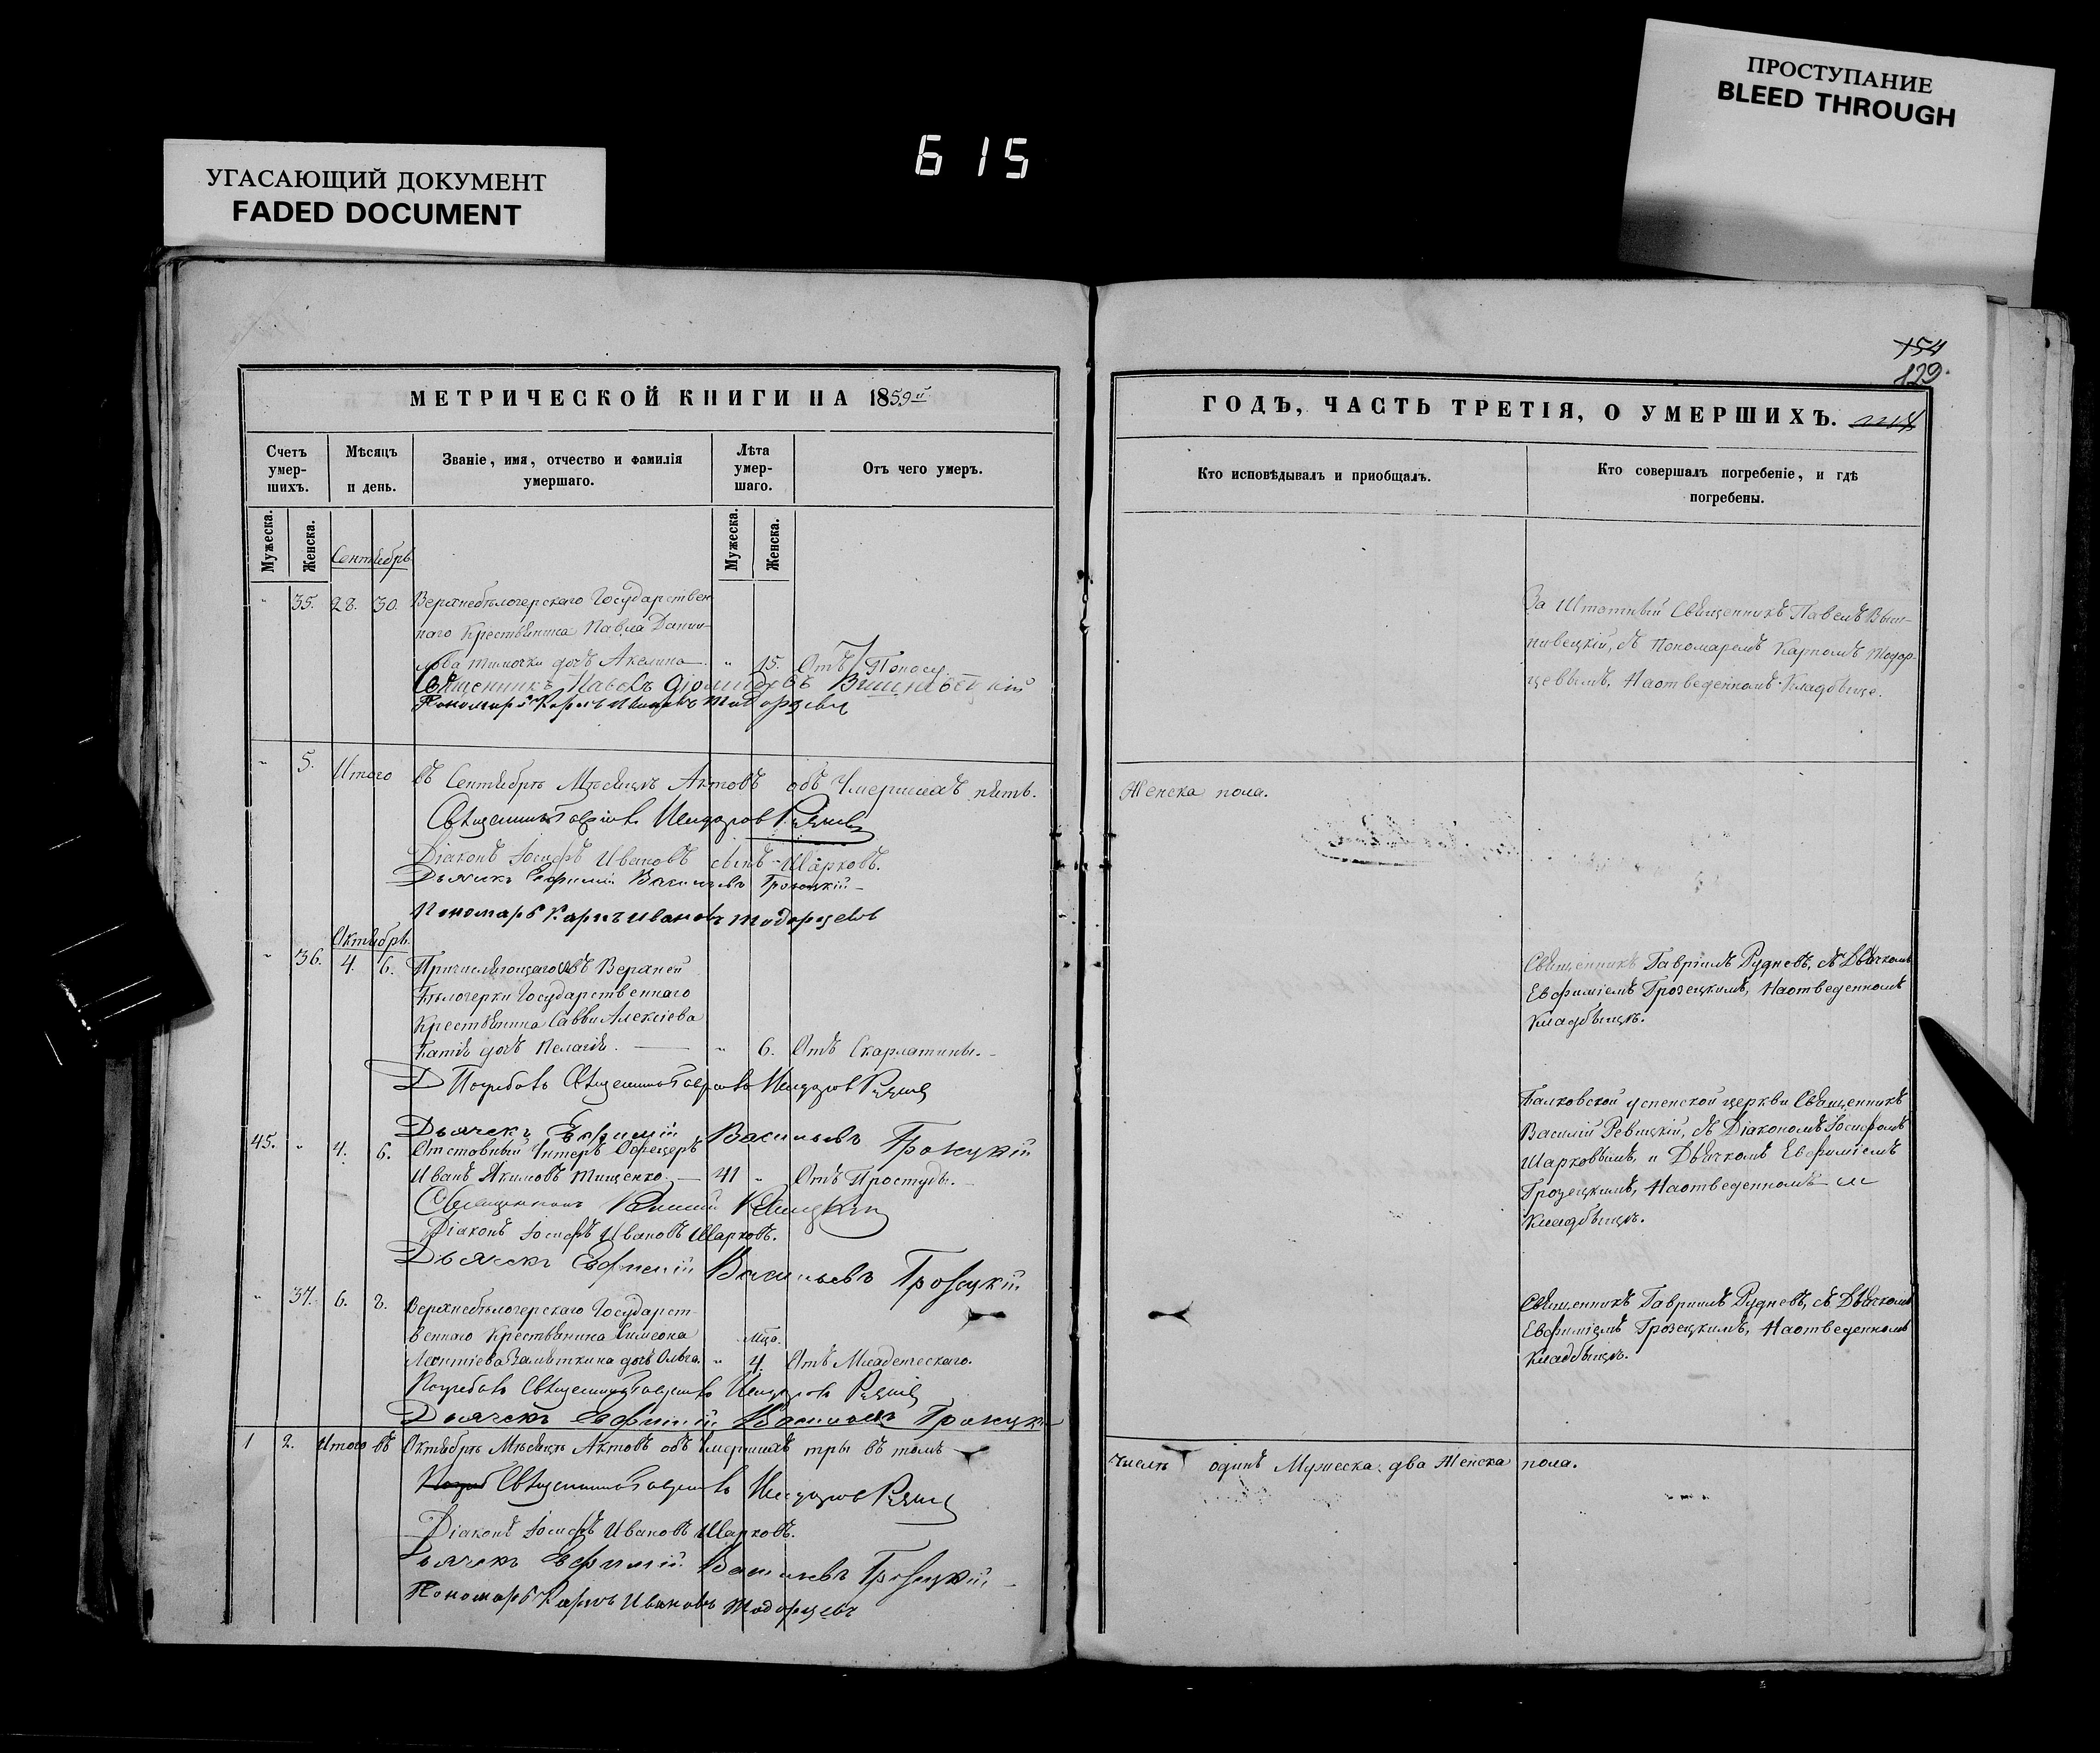 ПРОСТУПАНИЕ
BLEED THROUGH
615
УГАСАЮЩИЙ ДОКУМЕНТ
FADED DOCUMENT
154
129.
МЕТРИЧЕСКОЙ КНИГИ НА 1859й
Счетъ умер-шихъ.
Мѣсяцъ и день.
Званіе, имя, отчество и фамилія умершаго.
Лѣта умер-шаго.
Отъ чего умеръ.
Мужеска.
Женска.
Мужеска.
Женска.
Сентябрь
35. 28. 30. Верхнебѣлогерскаго Государствен-
наго Крестьянина Павла Дани-
лова дочь Акелина " 15. Отъ Поносу.
Священникъ Павелъ Вишневецкій
Пономарь Карпъ Ивановъ Тодорцевъ
" 5. Итого въ Сентябрѣ Мѣсяцѣ Актовъ объ Умершихъ пять.
Священникъ Гавріилъ Исидоровъ Рудневъ
Діаконъ Іосифъ Ивановъ сынъ Шарковъ.
Дьячекъ Ефимій Васильевъ Грозецкій
Пономарь Карпъ Ивановъ Тодорцевъ
Октябрь.
" 36. 4. 6. Причисляющагося въ Верхней
Бѣлогерки Государственнаго
Крестьянина Саввы Алексіева
дочь Пелагія. " 6. Отъ Скарлатины.
Погребалъ Священникъ Гавріилъ Исидоровъ Рудневъ
Дьячекъ Ефимій Васильевъ Грозецкій
45. " 4. 6. Отставный Унтеръ Офецеръ
Иванъ Якимовъ Тищенко. 41 " Отъ Простуды.
Священникъ Василій Ревицкій
Діаконъ Іосифъ Ивановъ Шарковъ.
Дьячекъ Ефимій Васильевъ Грозецкій
" 37. 6. 8. Верхнебѣлогерскаго Государст-
веннаго Крестьянина Симеона мца.
Леонтіева дочь Ольга. " 4. Отъ Младенческаго.
Погребалъ Священникъ Гавріилъ Исидоровъ Рудневъ
Дьячекъ Ефимій Васильевъ Грозецкій
1 2. Итого въ Октябрѣ Мѣсяцѣ Актовъ объ Умершихъ три въ томъ
Священникъ Гавріилъ Исидоровъ Рудневъ
Діаконъ Іосифъ Ивановъ Шарковъ.
Дьячекъ Ефимій Васильевъ Грозецкій
Пономарь Карпъ Ивановъ Тодорцевъ
ГОДЪ, ЧАСТЬ ТРЕТІЯ, О УМЕРШИХЪ.
Кто исповѣдывалъ и пріобщалъ.
Кто совершалъ погребеніе, и гдѣ погребены.
За Штатный Священникъ Павелъ Виш-
невецкій, съ Пономаремъ Карпомъ Тодор-
цевымъ, На отведенномъ Кладбище.
Женска пола.
Священникъ Гавріилъ Рудневъ, съ Дьячкомъ
Евфиміемъ Грозецкимъ, На отведенномъ
Кладбищѣ.
Балковской Успенской церкви Священникъ
Василій Ревицкій, съ Діакономъ Іосифомъ
Шарковымъ, и Дьячкомъ Евфиміемъ
Грозецкимъ, На отведенномъ
Кладбищѣ.
Священникъ Гавріилъ Рудневъ, съ Дьячкомъ
Евфиміемъ Грозецкимъ, На отведенномъ
Кладбищѣ.
числѣ одинъ Мужеска два Женска пола.